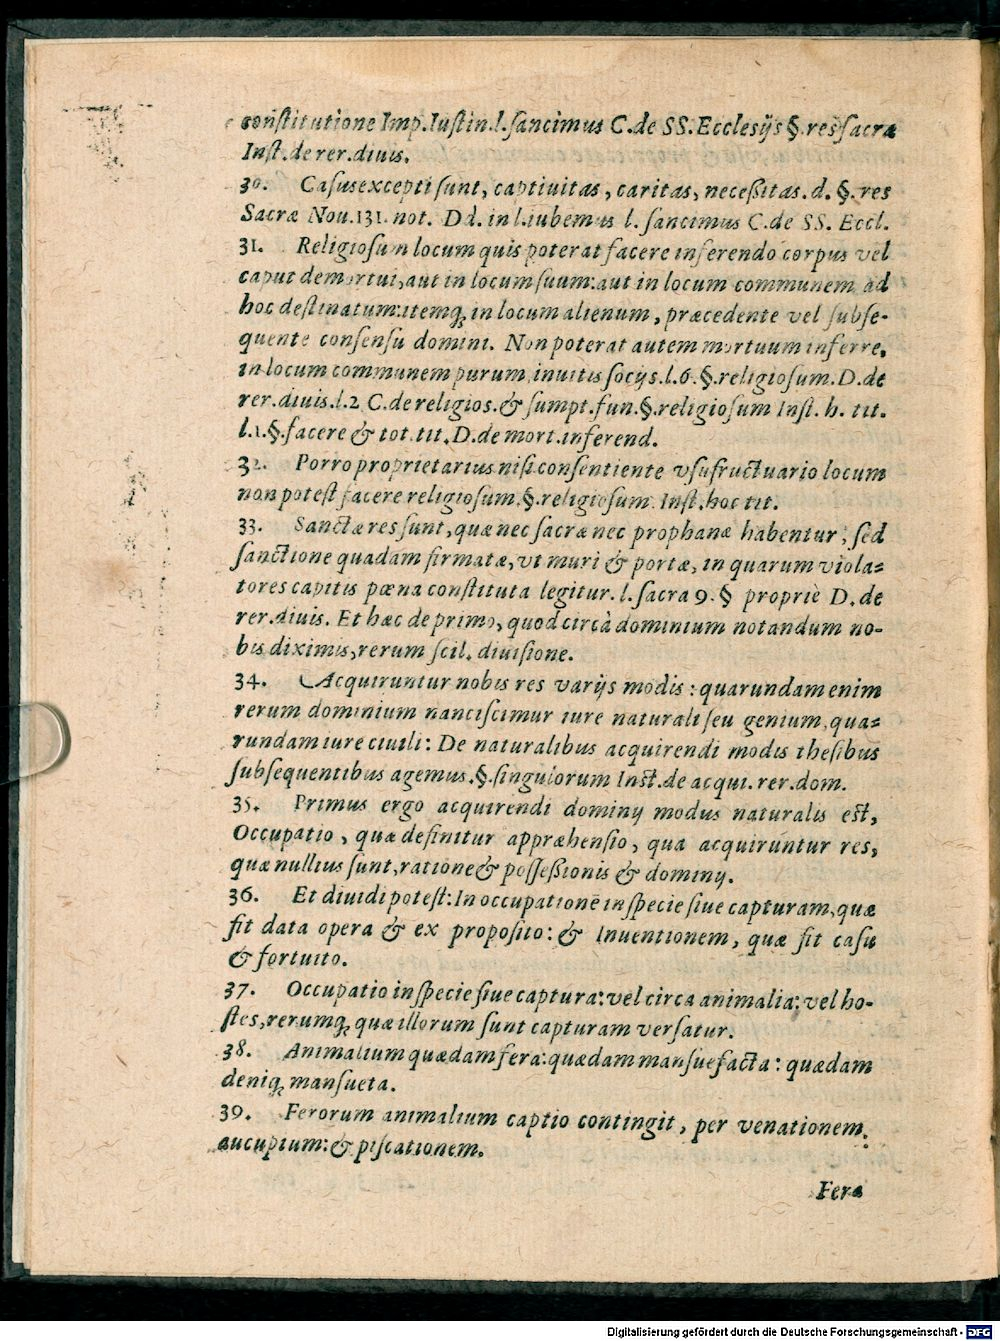 constitutione Imp. Iustin. l. sancimus C. de SS. Ecclesijs §. res sacra
Inst. de rer. diuis.
30. Casus excepti sunt, captiuitas, caritas, neceßitas. d. §. res
Sacræ Nou. 131. not. Dd. in l. iubemus l. sancimus C. de SS. Eccl.
31. Religiosum locum quis poterat facere inferendo corpus vel
caput demortui, aut in locum suum: aut in locum communem ad
hoc destinatum: itemq́; in locum alienum, præcedente vel subse-
quente consensu domini. Non poterat autem mortuum inferre,
in locum communem purum, inuitis socijs. l. 6. §. religiosum. D. de
rer. diuis. l. 2 C. de religios. & sumpt. fun. §. religiosum Inst. h. tit.
l. 1. §. facere & tot. tit. D. de mort. inferend.
32. Porro proprietarius nisi consentiente vsufructuario locum
non potest facere religiosum. §. religiosum. Inst. hoc tit.
33. Sanctæ res sunt, quæ nec sacræ nec prophanæ habentur, sed
sanctione quadam firmatæ, vt muri & portæ, in quarum viola-
tores capitis pœna constituta legitur. l. sacra 9. § propriè D. de
rer. diuis. Et hæc de primo, quod circà dominium notandum no-
bis diximis, rerum scil. diuisione.
34. Acquiruntur nobis res varijs modis: quarundam enim
rerum dominium nanciscimur iure naturali seu gentum, qua-
rundam iure ciuili: De naturalibus acquirendi modis thesibus
subsequentibus agemus. §. singulorum Inst. de acqui. rer. dom.
35. Primus ergo acquirendi dominij modus naturalis est,
Occupatio, quæ definitur appræhensio, qua acquiruntur res,
quæ nullius sunt, ratione & possessionis & dominij.
36. Et diuidi potest: In occupationē in specie siue capturam, quæ
fit data opera & ex proposito: & Inuentionem, quæ fit casu
& fortuito.
37. Occupatio in specie siue captura: vel circa animalia: vel ho-
stes, rerumq́; quæ illorum sunt capturam versatur.
38. Animalium quædam fera: quædam mansuefacta: quædam
deniq́; mansueta.
39. Ferorum animalium captio contingit, per venationem,
aucupium: & piscationem.
Fera
Digitalisierung gefördert durch die Deutsche Forschungsgemeinschaft - DFG